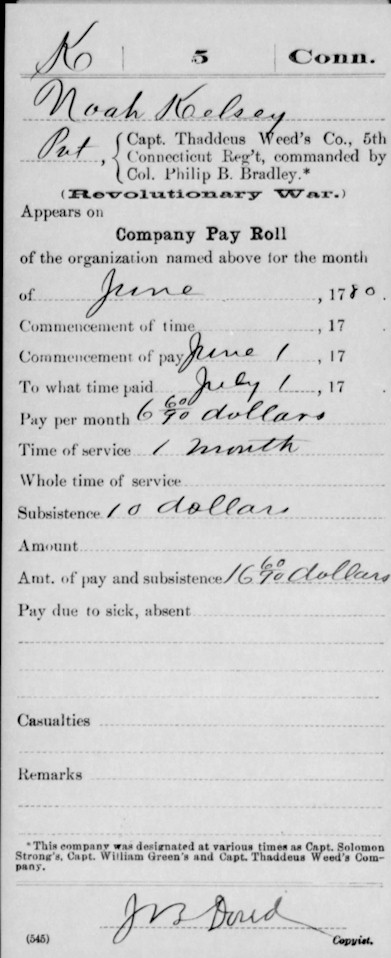 K | 5 | Conn.
Noah Kelsey
Pvt, { Capt. Thaddeus Weed's Co., 5th
Connecticut Reg't, commanded by
Col. Philip B. Bradley.*
(Revolutionary War.)
Appears on
Company Pay Roll
of the organization named above for the month
of June, 1780.
Commencement of time, 17 .
Commencement of pay June 1, 17 .
To what time paid July 1, 17 .
Pay per month 6 60/90 dollars
Time of service 1 month
Whole time of service
Subsistence 10 dollars
Amount
Amt. of pay and subsistence 16 60/90 dollars
Pay due to sick, absent
Casualties
Remarks
*This company was designated at various times as Capt. Solomon
Strong's, Capt. William Green's and Capt. Thaddeus Weed's Com-
pany.
(545) Copyist.